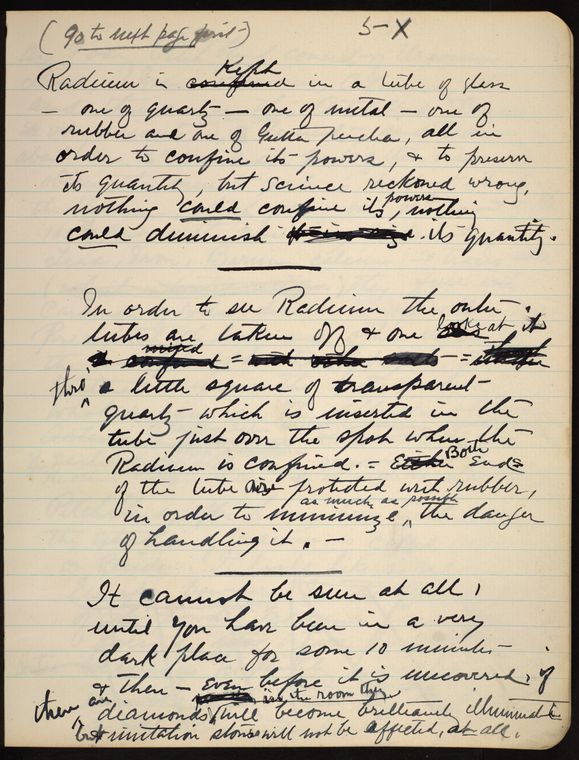 (go to next page first)
5-X
Radium is Kept in a tube of glass
— one of quartz — one of metal — one of
rubber and one of Gutta percha, all in
order to confine its powers, & to preserve
its quantity, but Science reckoned wrong,
nothing could confine its powers, nothing
could diminish its quantity.
In order to see Radium the outer
tubes are taken off & one looks at it
thro' a little square of transparent
quartz — which is inserted in the
tube just over the spot where the
Radium is confined. = Both Ends
of the tube are protected with rubber,
in order to minimize as much as possible the danger
of handling it. —
It cannot be seen at all,
until you have been in a very
dark place for some 10 minutes —
& then — Even before it is uncovered, if
there are diamonds in the room they will become brilliantly illuminated
but imitation stones will not be affected, at all.